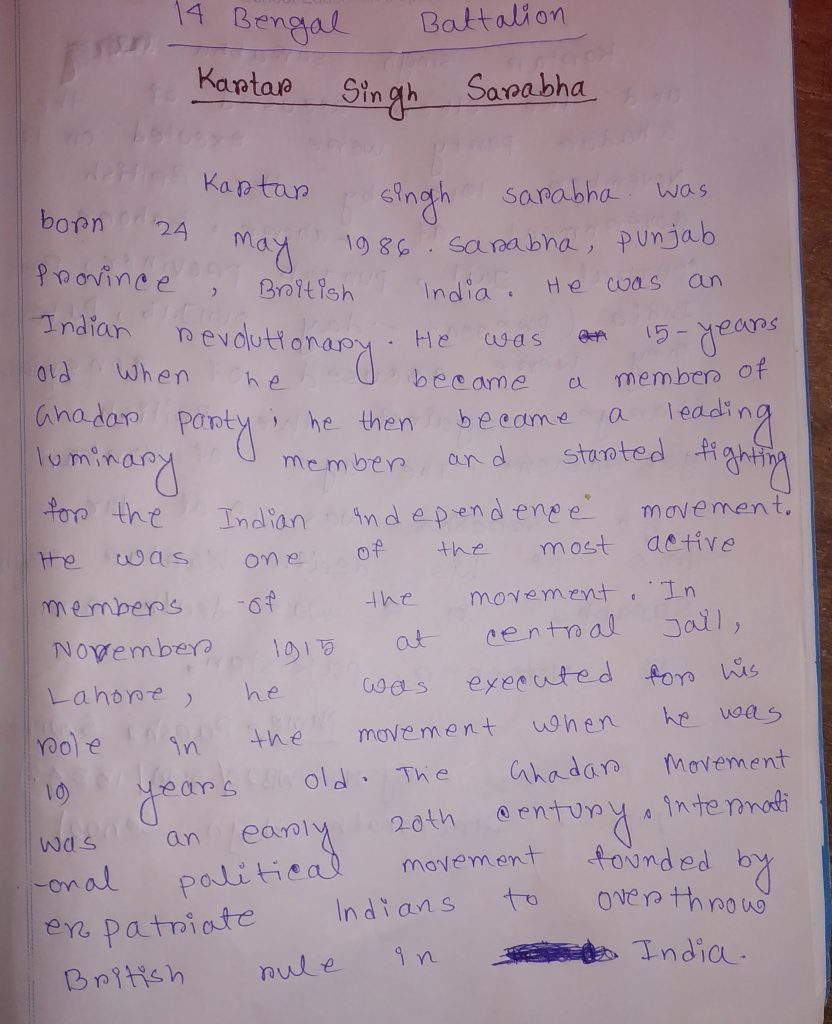 14 Bengal Battalion
Kartar Singh Sarabha
Kartar singh sarabha was
born 24 May 1986. sarabha, punjab
Province, British India. He was an
Indian revolutionary. He was 15-years
old when he became a member of
Ghadar party; he then became a leading
luminary member and started fighting
for the Indian independence movement.
He was one of the most active
members of the movement. In
November 1915 at central Jail,
Lahore, he was executed for his
role in the movement when he was
19 years old. The Ghadar Movement
was an early 20th century, internati
-onal political movement founded by
expatriate Indians to overthrow
British rule in India.